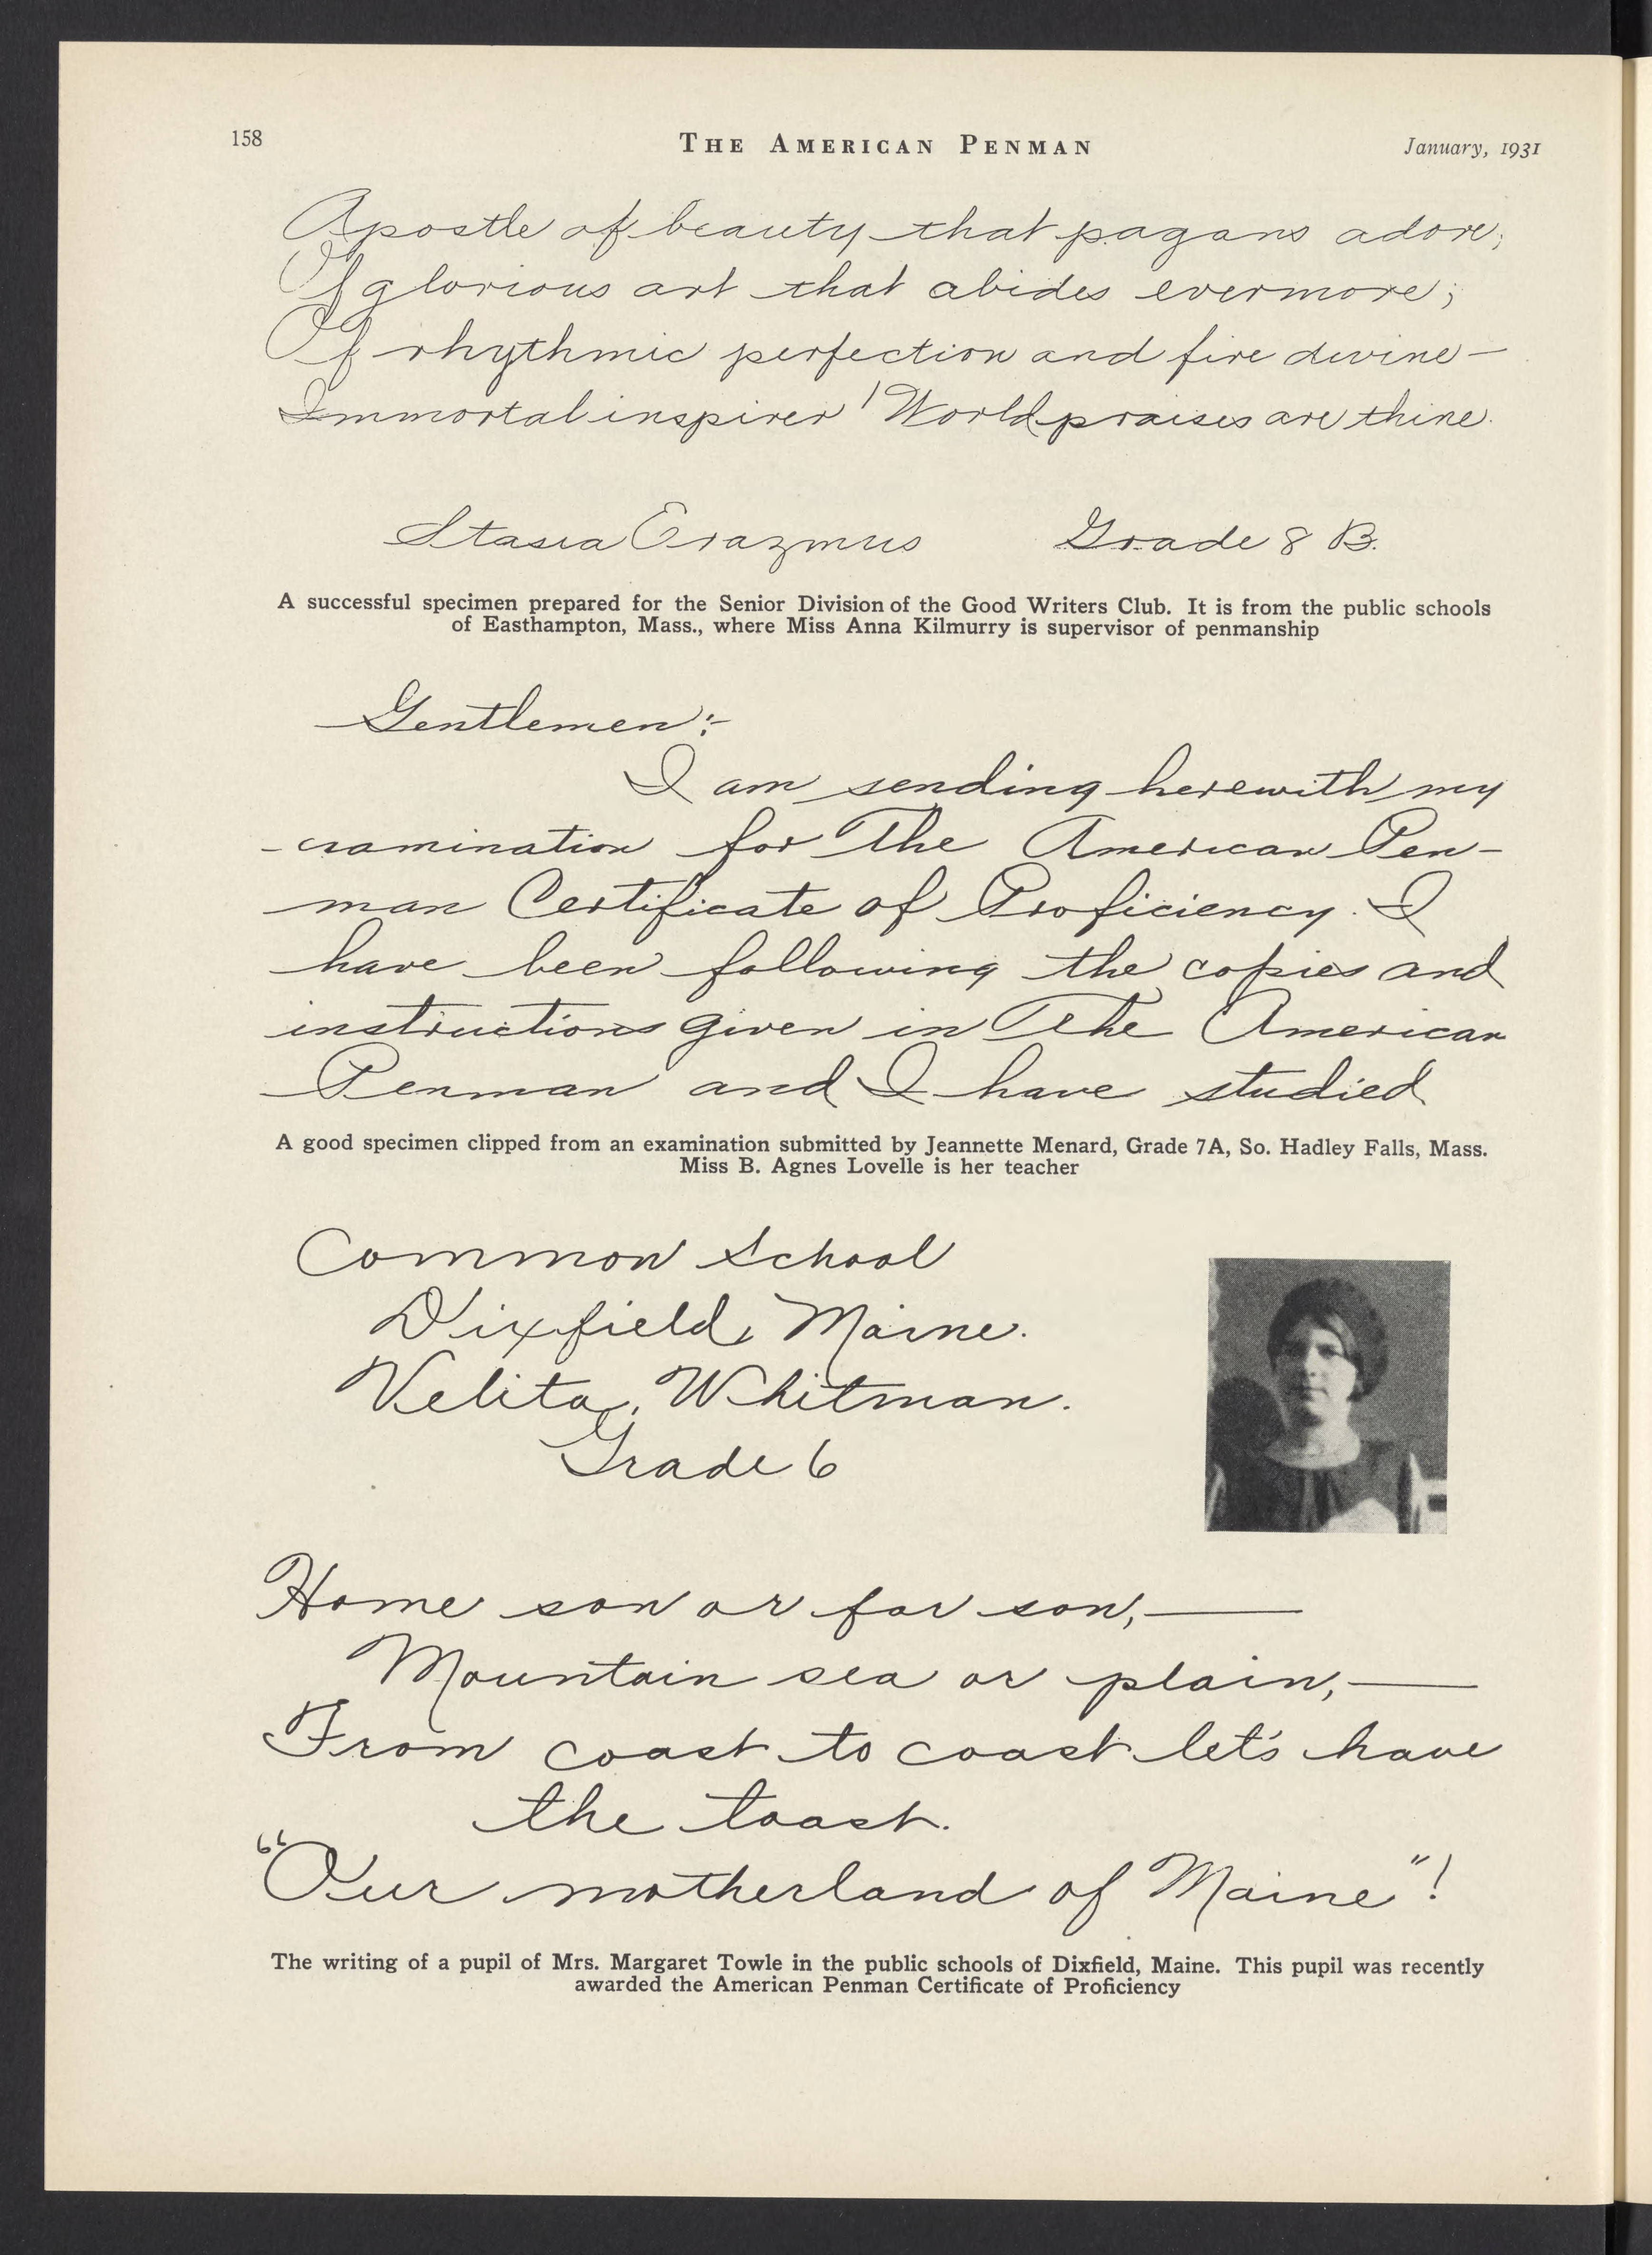 158
THE AMERICAN PENMAN
January, 1931
Apostle of beauty that pagans adore;
Of glorious art that abides evermore;
Of rhythmic perfection and fire divine—
Immortal inspirer! World praises are thine.
Stasia Erazmus Grade 8 B.
A successful specimen prepared for the Senior Division of the Good Writers Club. It is from the public schools
of Easthampton, Mass., where Miss Anna Kilmurry is supervisor of penmanship
Gentlemen:-
I am sending herewith my
examination for The American Pen-
man Certificate of Proficiency. I
have been following the copies and
instructions given in The American
Penman and I have studied
A good specimen clipped from an examination submitted by Jeannette Menard, Grade 7A, So. Hadley Falls, Mass.
Miss B. Agnes Lovelle is her teacher
Common School
Dixfield, Maine.
Velita, Whitman.
Grade 6
Home son or far son,—
Mountain sea or plain,—
From coast to coast let's have
the toast.
"Our motherland of Maine"!
The writing of a pupil of Mrs. Margaret Towle in the public schools of Dixfield, Maine. This pupil was recently
awarded the American Penman Certificate of Proficiency